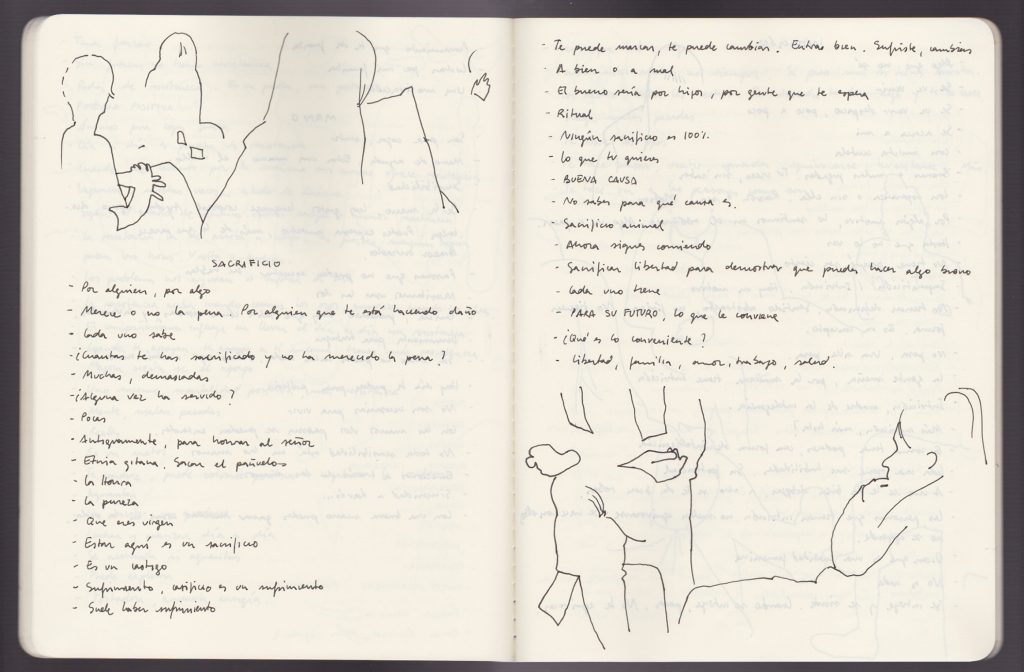 SACRIFICIO
- Por alguien, por algo
- Merece o no la pena. Por alguien que te está haciendo daño
- Cada uno sabe
- ¿Cuántas te has sacrificado y no ha merecido la pena?
- Muchas, demasiadas
- ¿Alguna vez ha servido?
- Pocas
- Antiguamente, para honrar al señor
- Etnia gitana. Sacan el pañuelos
- La Honra
- La pureza
- Que eres virgen
- Estar aquí es un sacrificio
- Es un castigo
- Sufrimiento, es un sufrimiento
- Suele haber sufrimiento
- Te puede marcar, te puede cambiar. Entras bien. Sufriste, cambias
- A bien o a mal
- El bueno sería por hijos, por gente que te espera
- Ritual
- Ningún sacrificio es 100%
- Lo que tu quieres
- BUENA CAUSA
- No sabes para qué causa es.
- Sacrificio animal
- Ahora sigues comiendo
- Sacrificar libertad para demostrar que puedes hacer algo bueno
- Cada uno tiene
- PARA SU FUTURO, lo que le conviene
- ¿Qué es lo conveniente?
- Libertad, familia, amor, trabajo, salud.